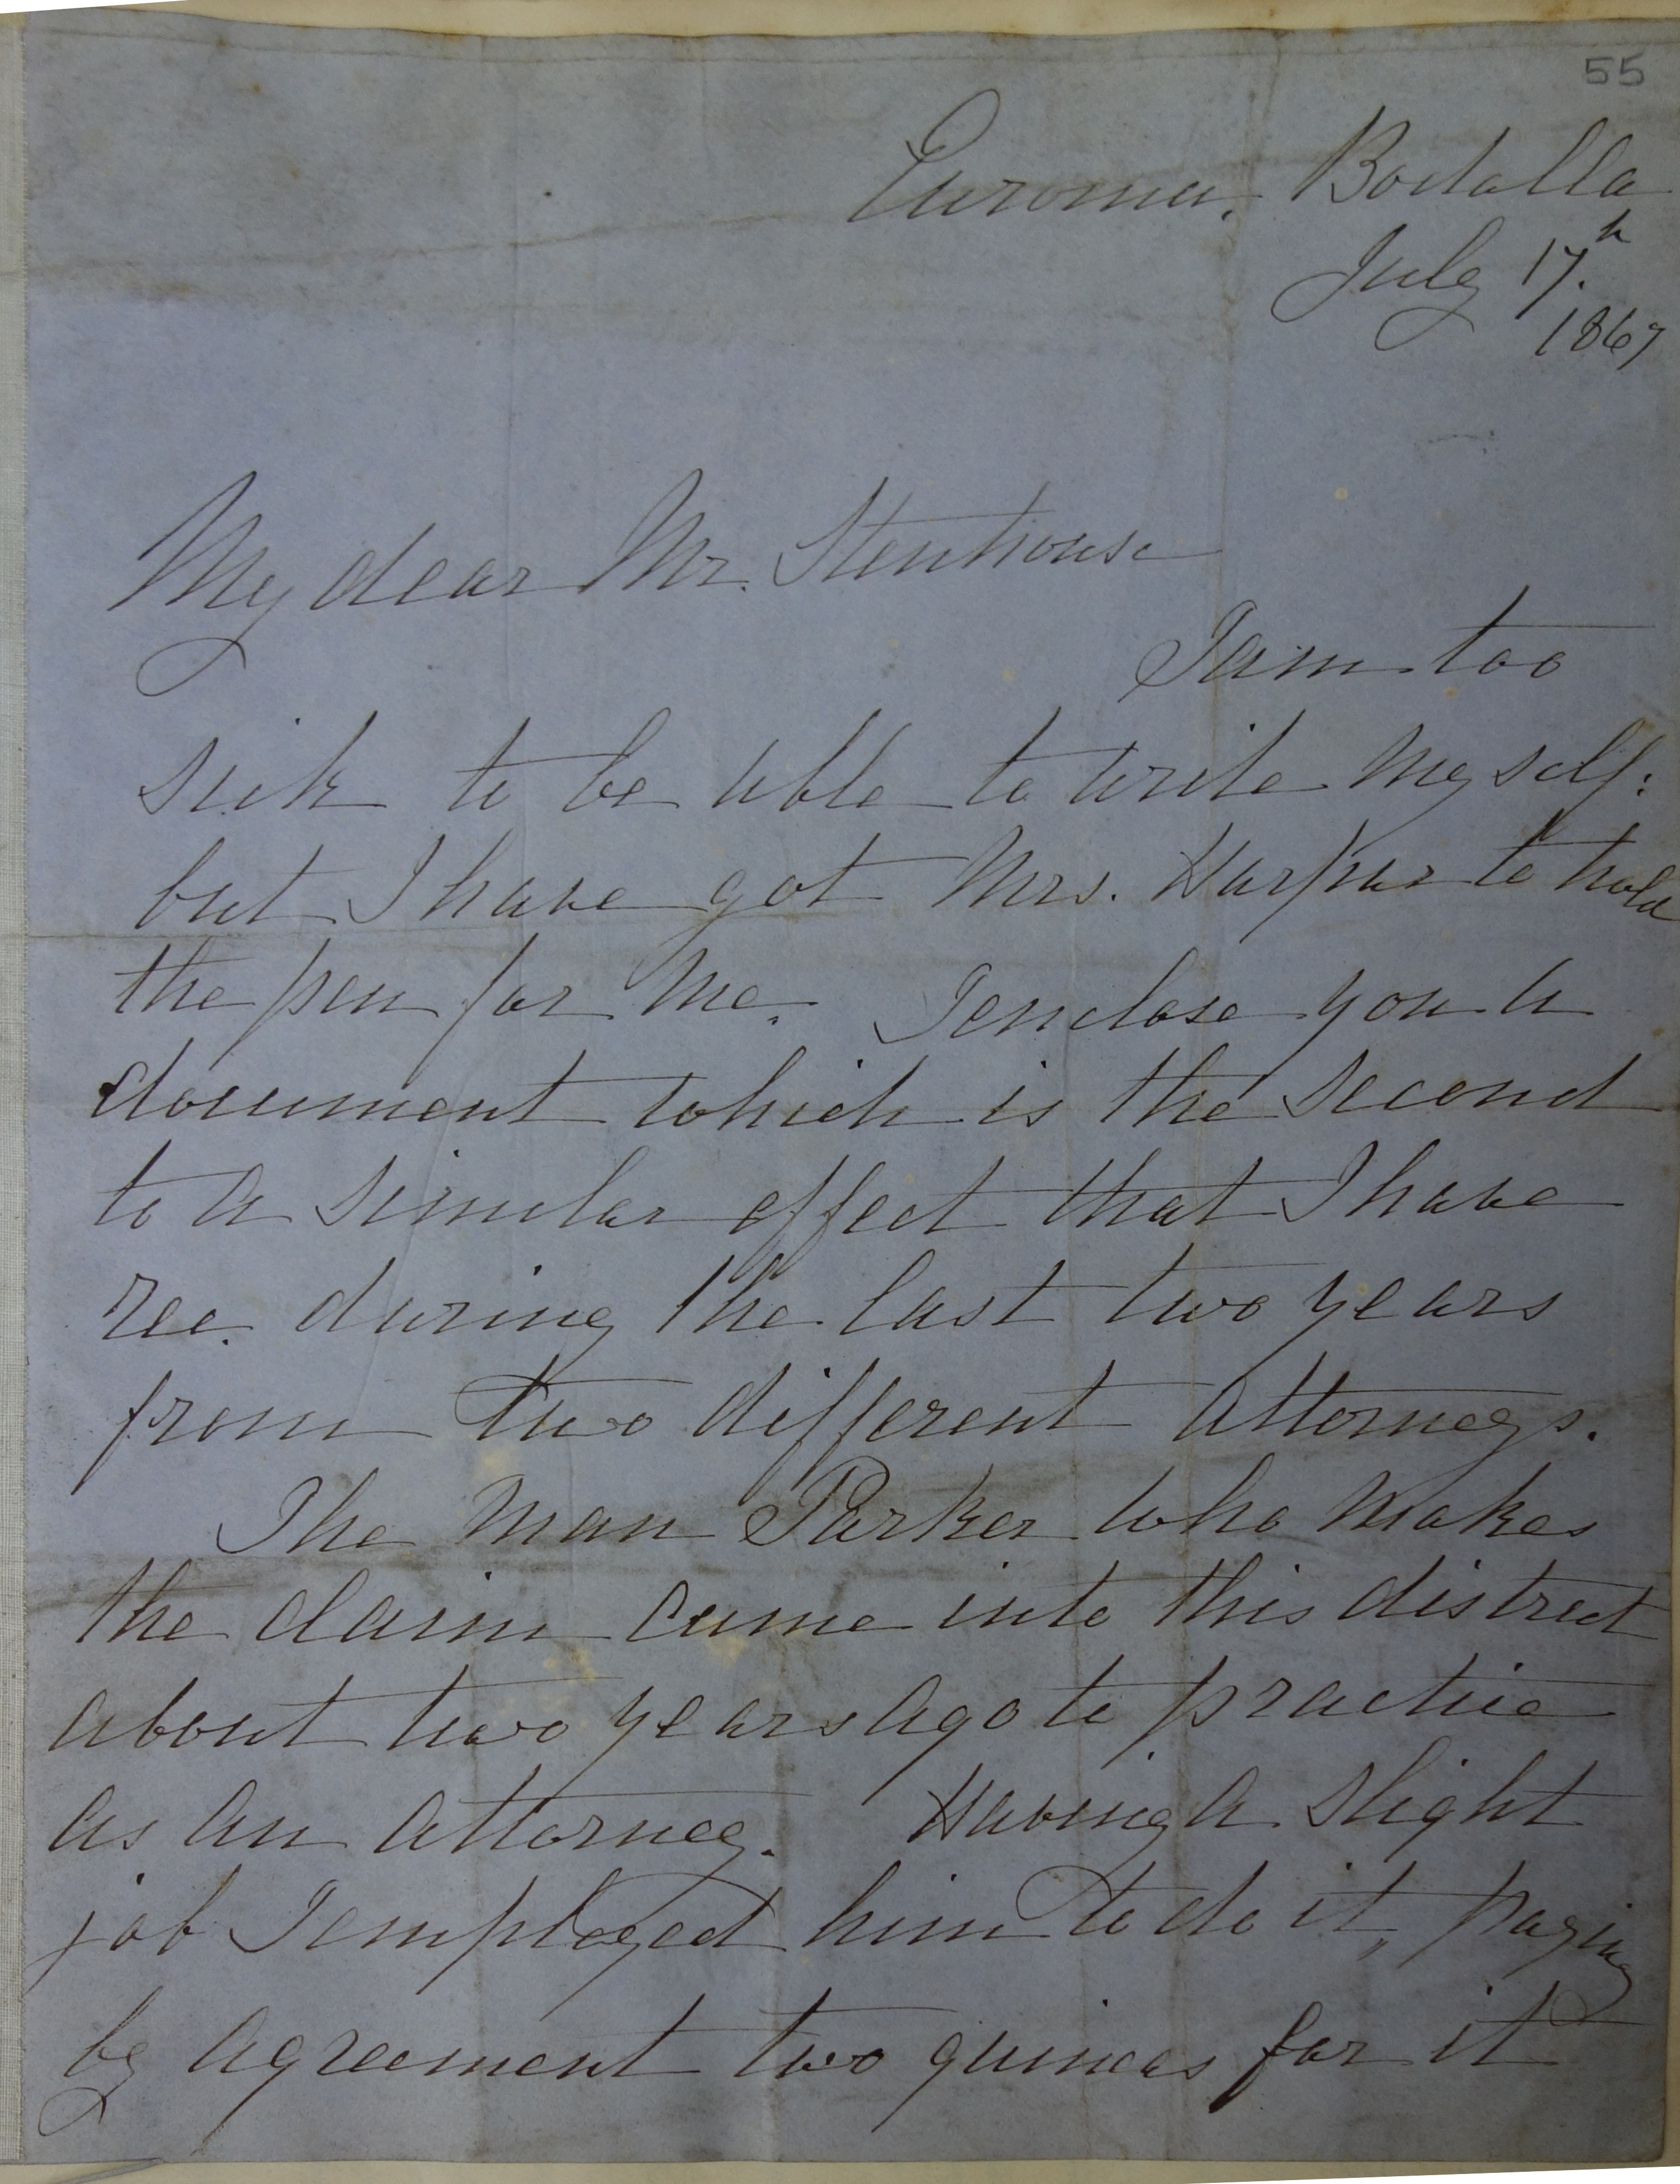 55
Euroma. Bodalla
July 17.h
1867
My dear Mr. Stenhouse
I am too
sick to be able to write myself:
but I have got Mrs. Harpur to hold
the pen for me. I enclose you a
document which is the second
to a similar effect that I have
rec. during the last two years
from two different attorneys.
The man Parker who makes
the claim came into this district
about two years ago to practice
as an attorney. Having a slight
job I employed him to do it, paying
by agreement two guineas for it